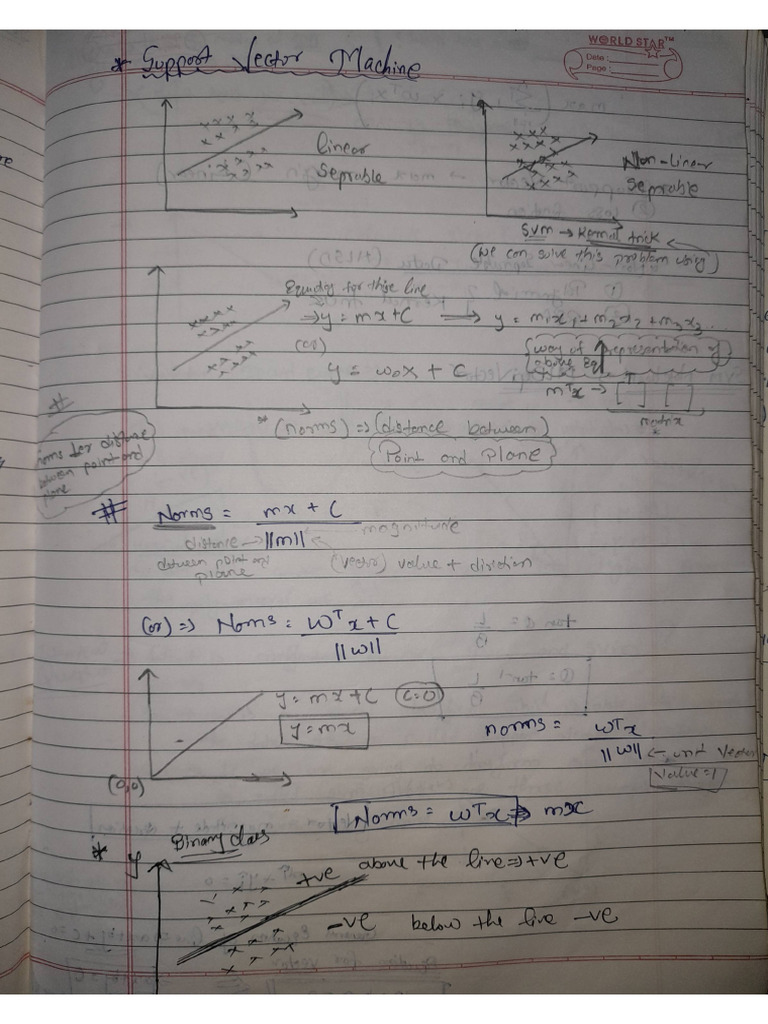 WORLD STAR™
Date :
Page :
* Support Vector Machine
linear
seprable
Non-linear
seprable
SVM → Kernal trick
(we can solve this problem using)
Equation for this line
⇒ y = mx + C → y = m1x1 + m2x2 + m3x3...
(or)
y = w0x + C
(way of representation of
above Eq
mᵀx → [ ]ᵀ [ ]
matrix
* (norms) ⇒ (distance between)
Point and Plane
#
norms for distance
between point and
plane
# Norms = mx + C
||m||
magnitude
distance →
between point and
plane
(vector) value + dirction
(or) ⇒ Noms = wᵀx + C
||w||
y = mx + C (C=0)
y = mx
(0,0)
norms = wᵀx
||w|| ← unit Vector
Value = 1
Norms = wᵀx ⇒ mx
* y
Binary class
+ve above the line ⇒ +ve
-ve below the line -ve